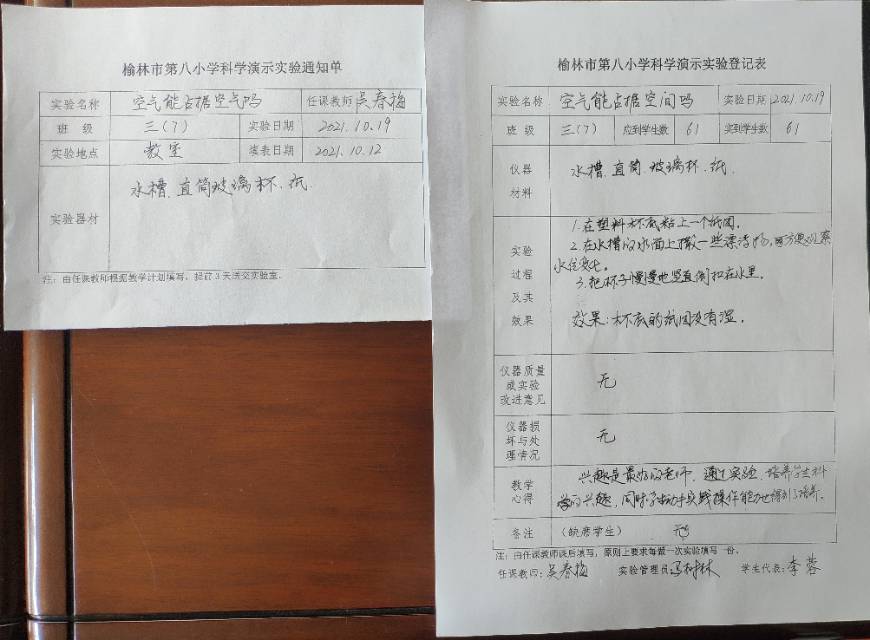 榆林市第八小学科学演示实验通知单
实验名称 空气能占据空气吗 任课教师 吴春梅
班 级 三(7) 实验日期 2021.10.19
实验地点 教室 填表日期 2021.10.12
实验器材 水槽、直筒玻璃杯、纸
注:由任课教师根据教学计划填写,提前3天送交实验室。
榆林市第八小学科学演示实验登记表
实验名称 空气能占据空间吗 实验日期 2021.10.19
班 级 三(7) 应到学生数 61 实到学生数 61
仪器
材料
水槽、直筒玻璃杯、纸
实验
过程
及其
效果
1.在塑料杯底粘上一个纸团。
2.在水槽的水面上撒一些漂浮物,方便观察
水位变化。
3.把杯子慢慢地竖直倒扣在水里。
效果:杯底的纸团没有湿。
仪器质量
或实验
改进意见
无
仪器损
坏与处
理情况
无
教学
心得
兴趣是最好的老师,通过实验,培养学生科
学的兴趣,同时学生动手实践操作能力也得到了培养。
备注 (缺席学生) 无
注:由任课教师课后填写,原则上要求每做一次实验填写一份。
任课教师:吴春梅 实验管理员 冯树林 学生代表:李蓉